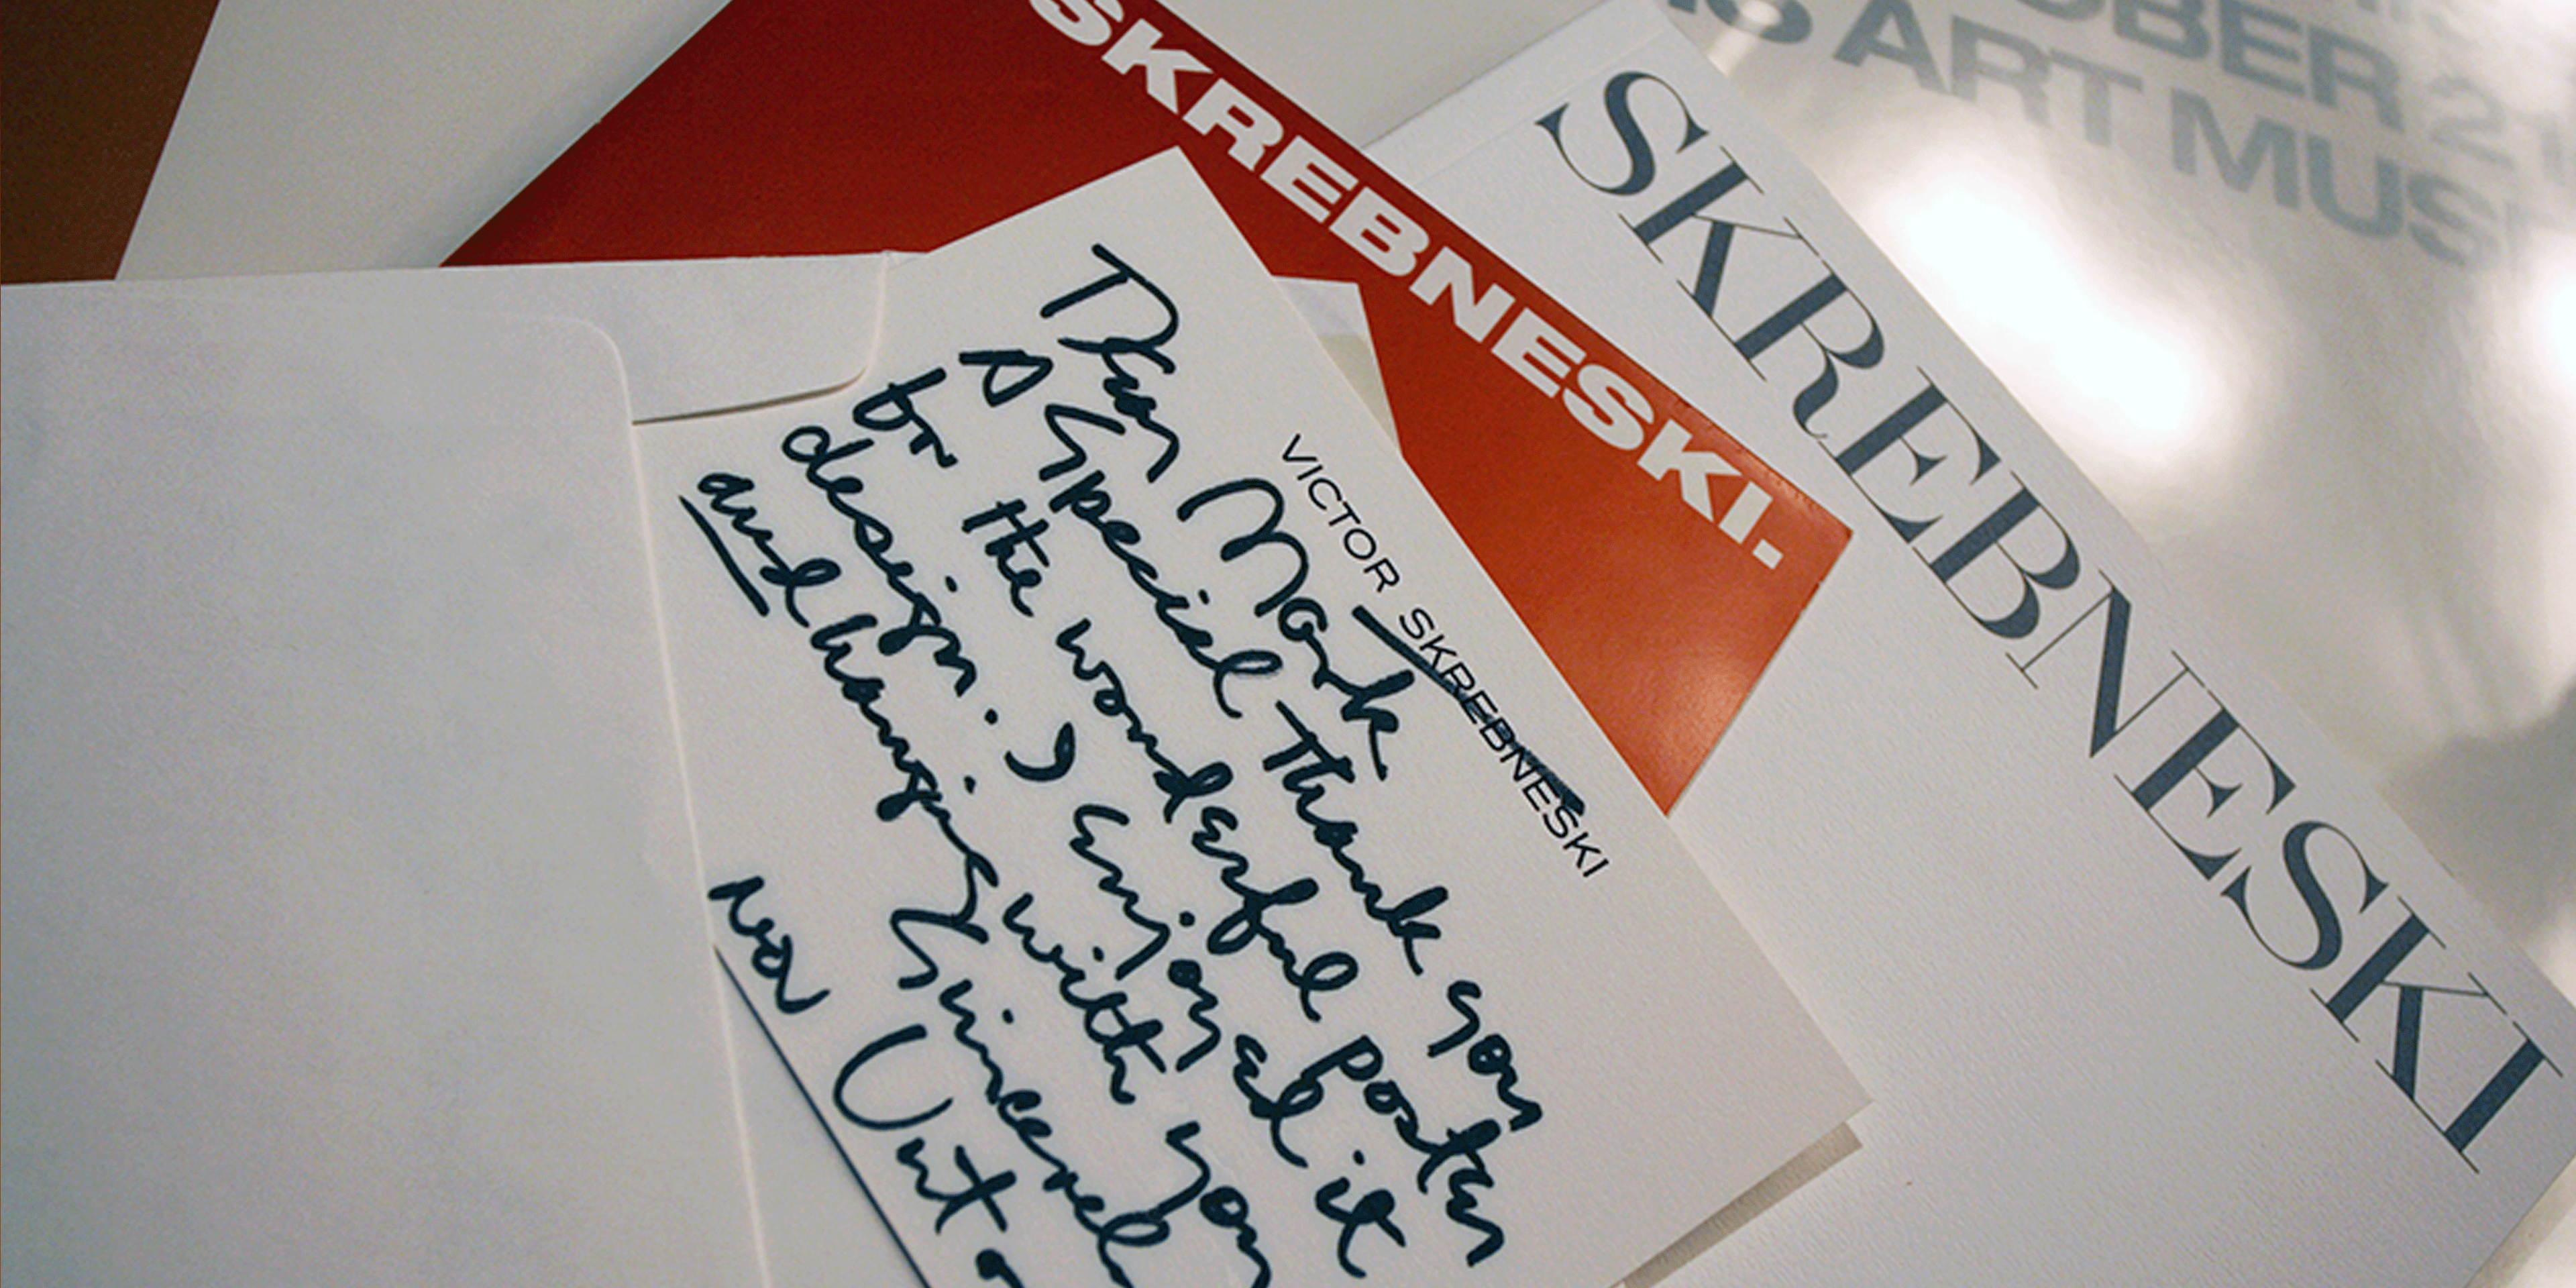 SKREBNESKI.
SKREBNESKI
OBER 2
ART MUS
VICTOR SKREBNESKI
Dear Mark
A Special Thank you
for the wonderful poster
design. I enjoyed it
and hanging with you
Sincerel
Nov